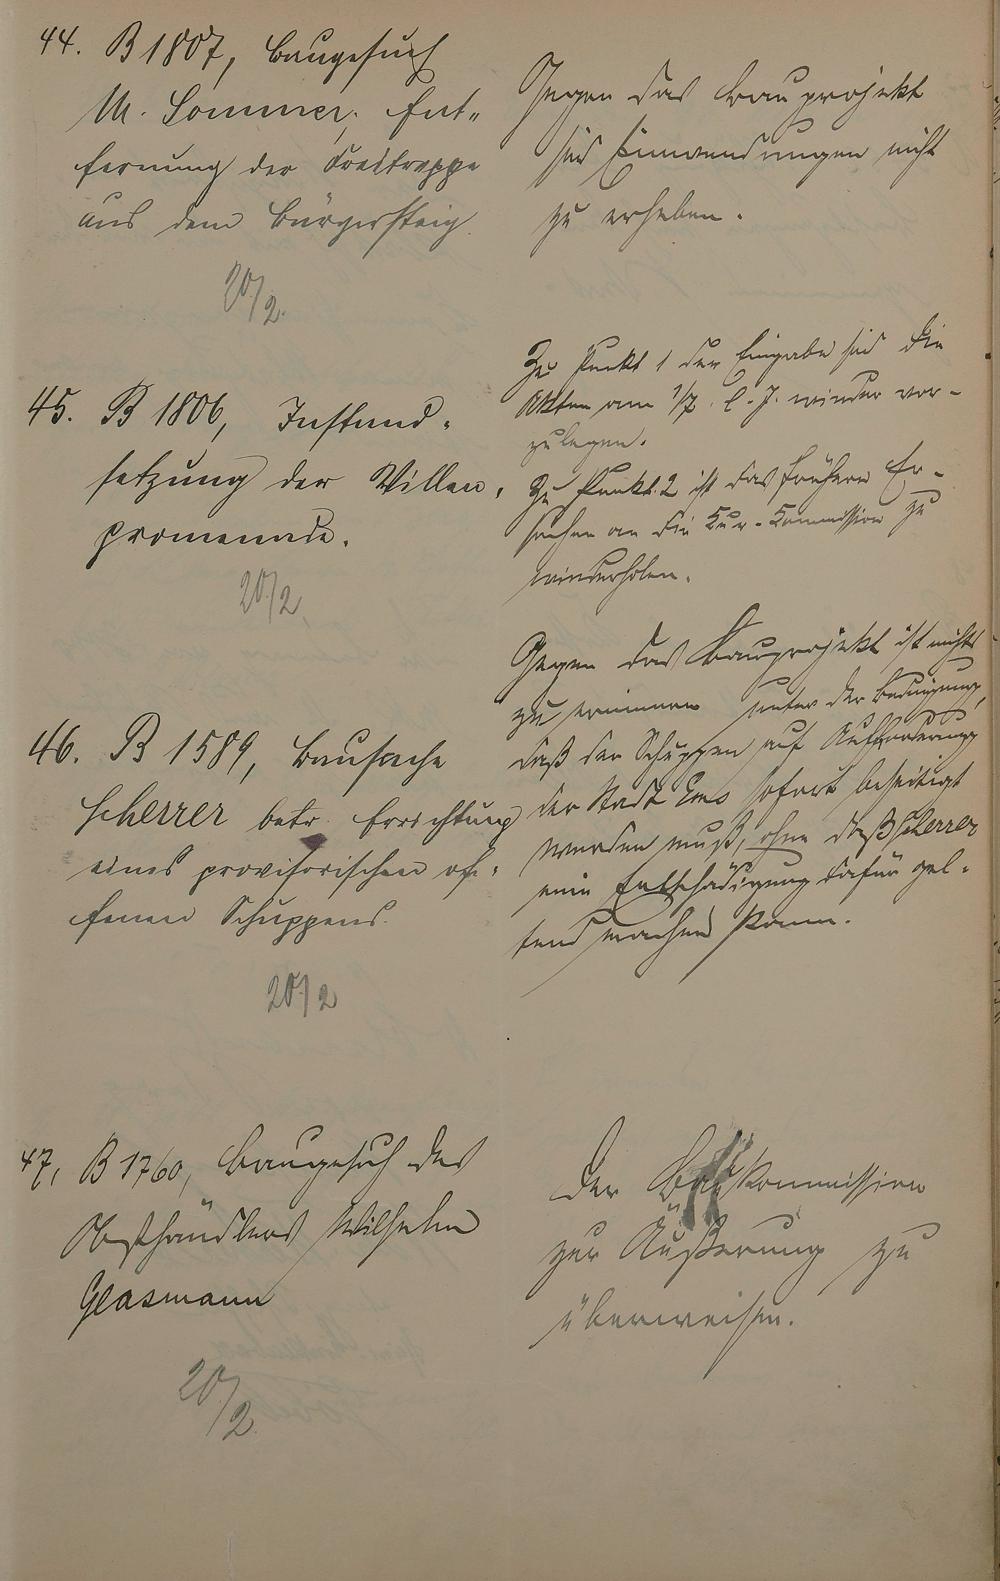 44. B 1807, Baugesuch
M. Sommer; Ent-
fernung der Freitreppe
aus dem Bürgersteig.
20/2.
Gegen das Bauprojekt
sind Einwendungen nicht
zu erheben.
45. B 1806, Instand-
setzung der Villen-
promenade.
20/2
Zu Punkt 1 der Eingabe sind die
Akten am 1/7. l. J. wieder vor-
zulegen.
Zu Punkt 2 ist das frühere Er-
suchen an die Kur-Kommission zu
wiederholen.
46. B 1589, Bausache
Scherrer betr. Errichtung
eines provisorischen of-
fenen Schuppens.
20/2
Gegen das Bauprojekt ist nichts
zu erinnern unter der Bedingung,
daß der Schuppen auf Aufforderung
der Stadt Ems sofort beseitigt
werden muß, ohne daß Scherrer
eine Entschädigung dafür gel-
tend machen kann.
47, B 1760, Baugesuch des
Obsthändlers Wilhelm
Glasmann
20/2
Der Baukommission
zur Äußerung zu
überweisen.